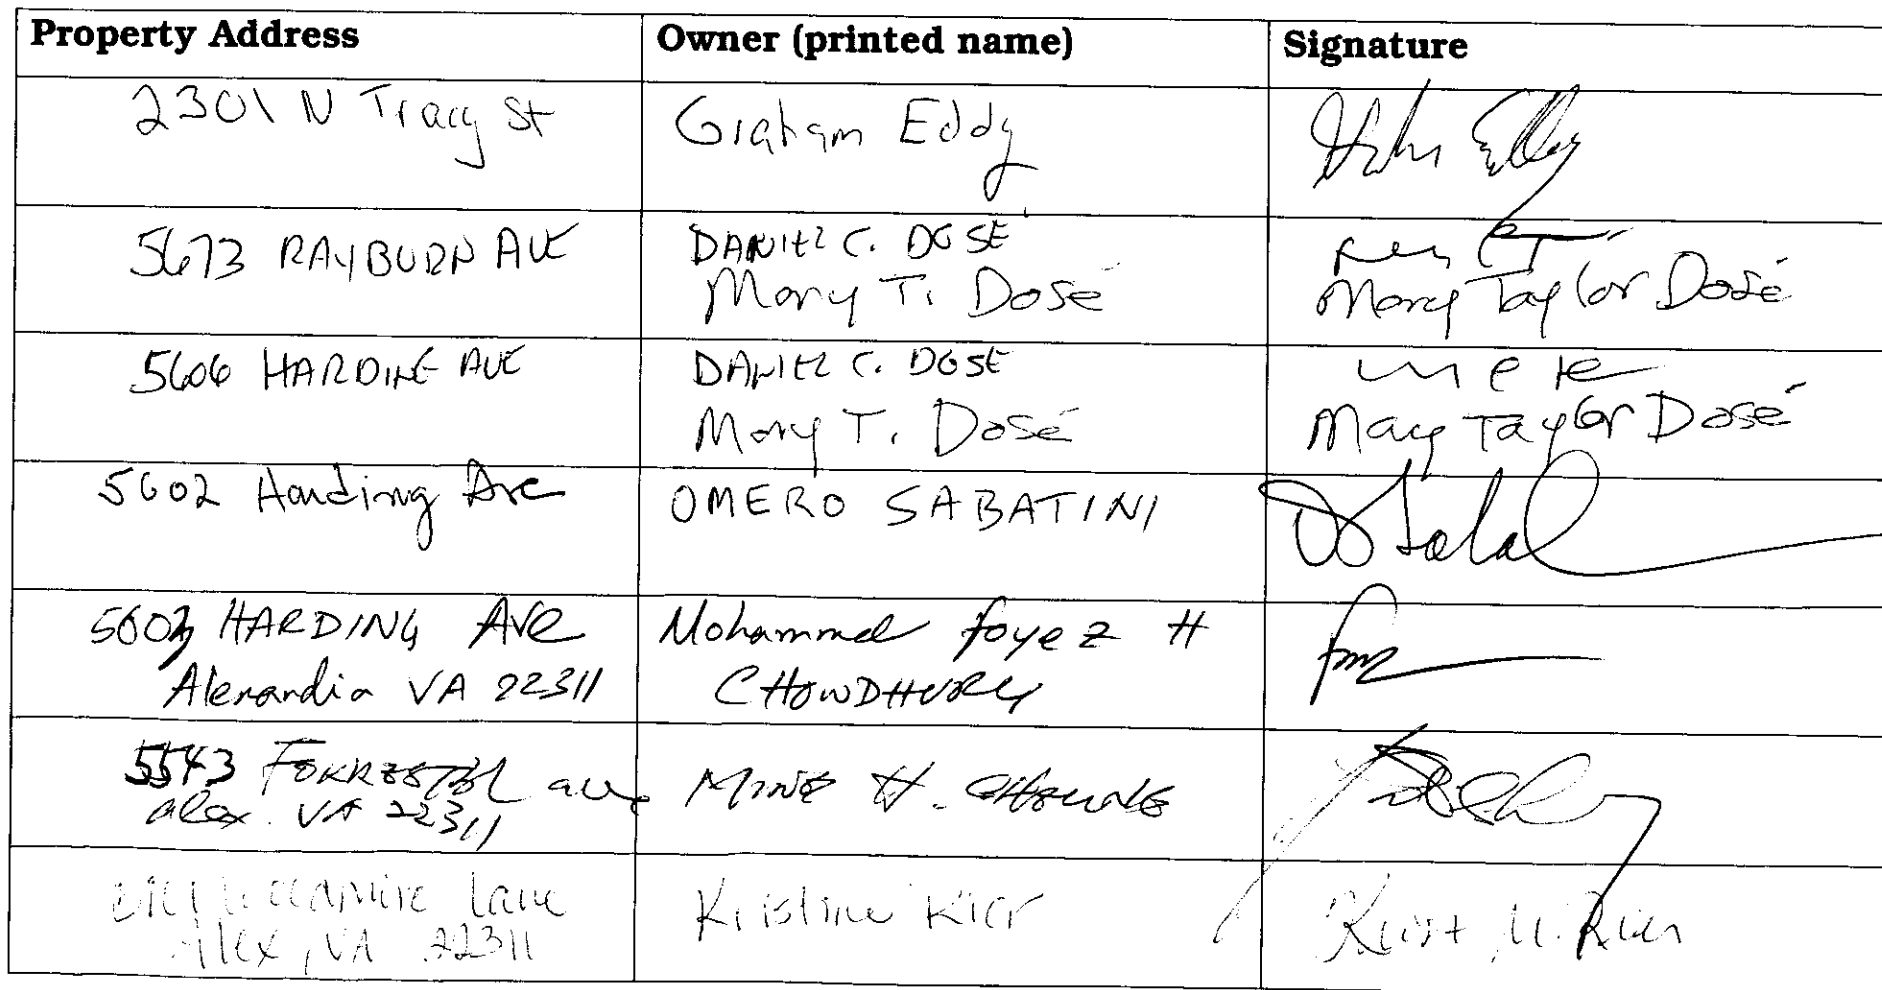 Property Address Owner (printed name) Signature
2301 N Tracy St Graham Eddy
5673 RAYBURN AVE DANIEL C. DOSÉ
Mary T. Dosé Mary Taylor Dosé
5606 HARDING AVE DANIEL C. DOSE
Mary T. Dosé Mary Taylor Dosé
5602 Harding Ave OMERO SABATINI
HARDING Ave Mohammed foyez H
Alexandria VA 22311 CHOWDHURY
5543 FORRESTAL ave H.
alex. VA 22311
Lane Kristine Kier
Alex, VA 22311